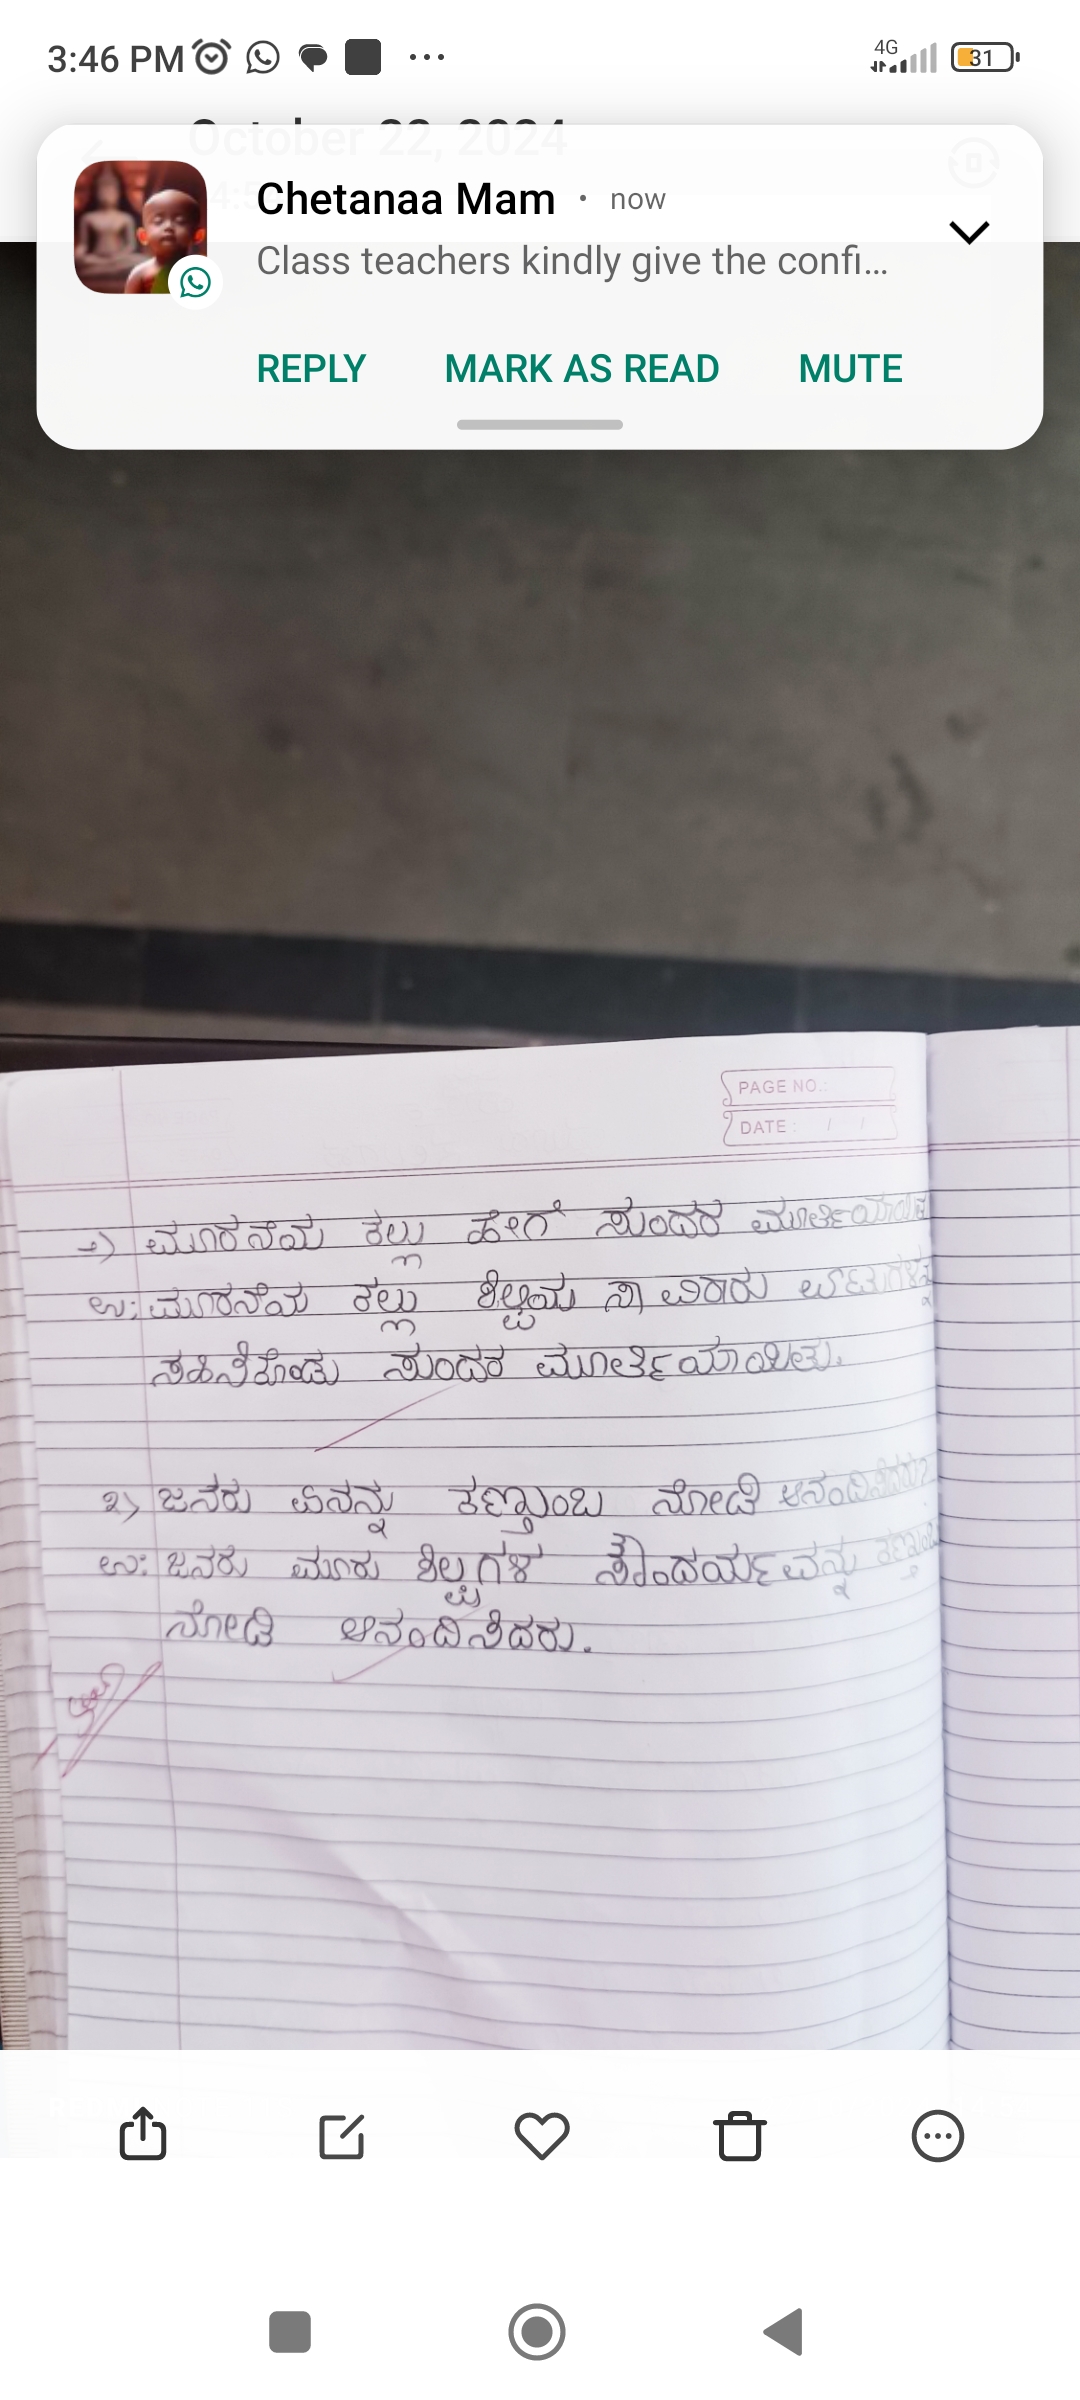 3:46 PM
4G
31
October 22, 2024
Chetanaa Mam • now
Class teachers kindly give the confi...
REPLY MARK AS READ MUTE
PAGE NO.:
DATE : / /
೨) ಮೂರನೆಯ ಕಲ್ಲು ಹೇಗೆ ಸುಂದರ ಮೂರ್ತಿಯಾಯಿತು
ಉ: ಮೂರನೆಯ ಕಲ್ಲು ಶಿಲ್ಪಿಯ ಸಾವಿರಾರು ಏಟುಗಳನ್ನು
ಸಹಿಸಿಕೊಂಡು ಸುಂದರ ಮೂರ್ತಿಯಾಯಿತು.
೩) ಜನರು ಏನನ್ನು ಕಣ್ತುಂಬ ನೋಡಿ ಆನಂದಿಸಿದರು?
ಉ: ಜನರು ಮೂರು ಶಿಲ್ಪಗಳ ಸೌಂದರ್ಯವನ್ನು ಕಣ್ತುಂಬ
ನೋಡಿ ಆನಂದಿಸಿದರು.